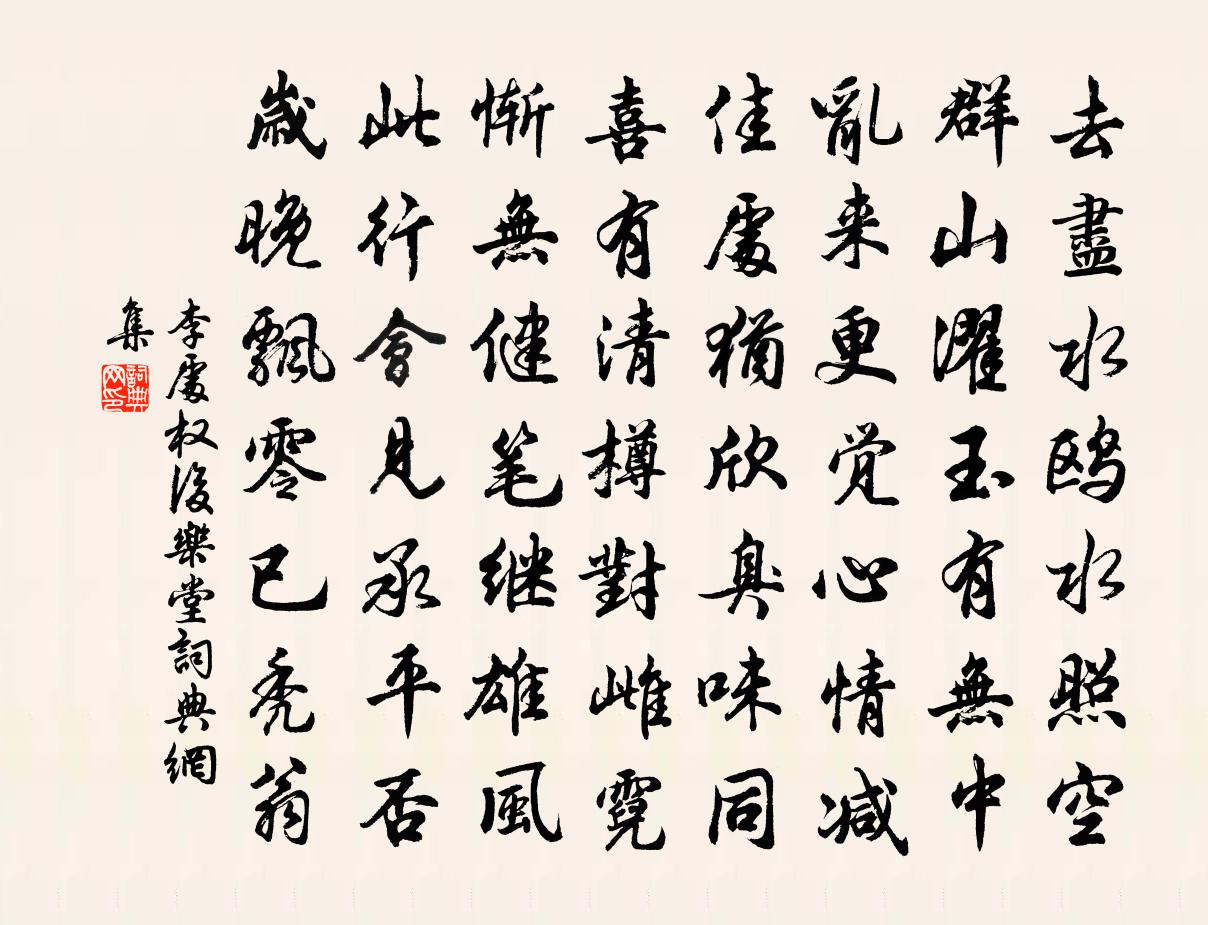 去盡水鸥水照空
群山濯玉有無中
亂来更觉心情减
佳處猶欣臭味同
喜有清樽對雌霓
慚無健笔继雄風
此行會見承平否
歲晚飄零已禿翁
李處权後樂堂詞典網
集
詞典网印